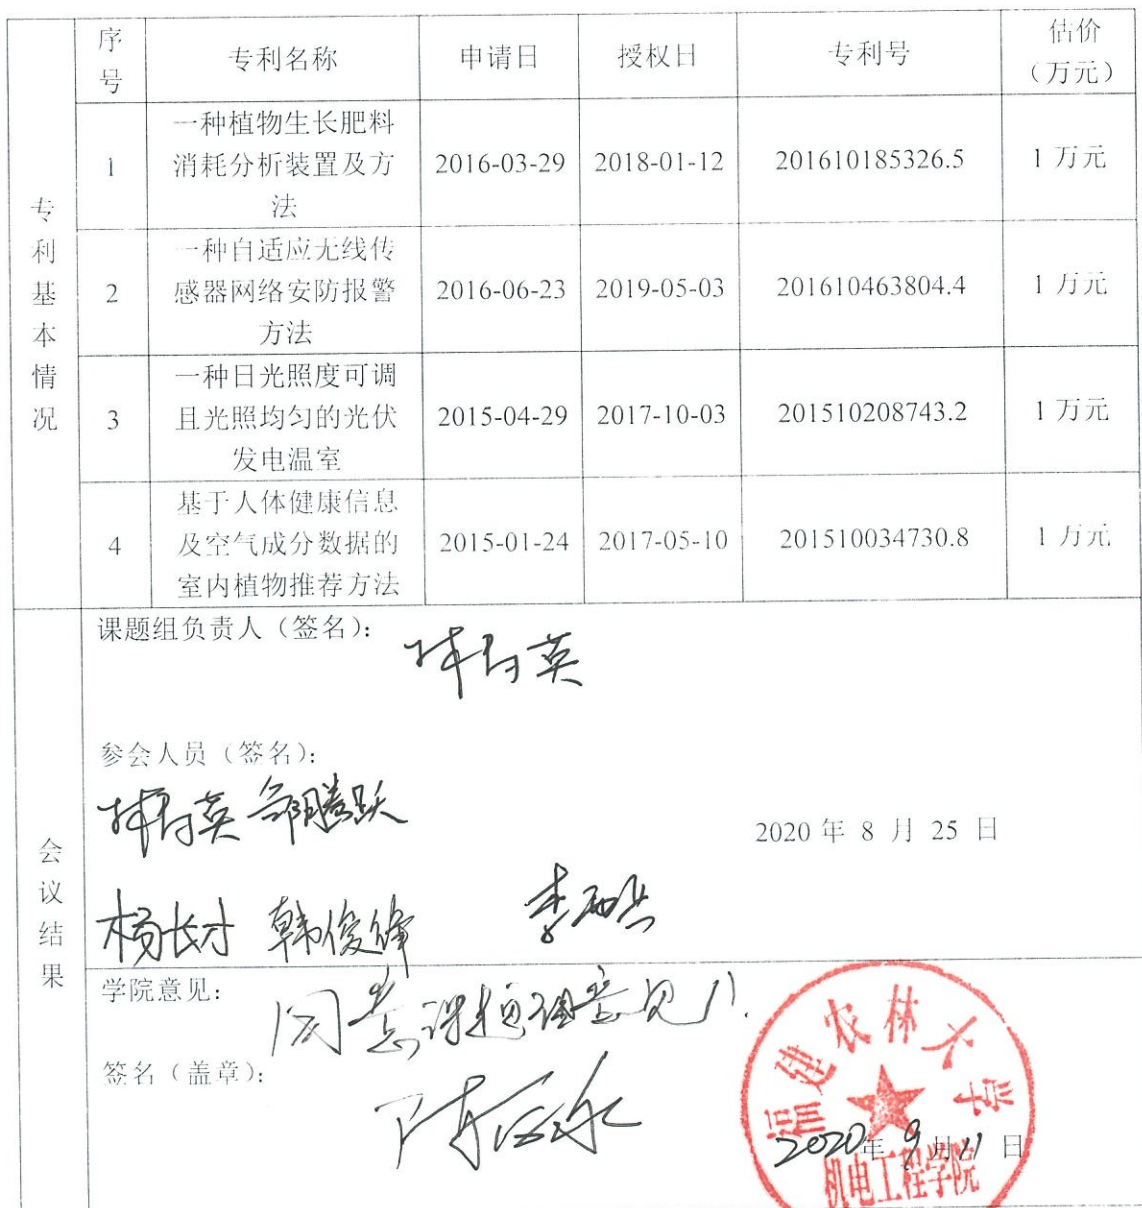 序号 专利名称 申请日 授权日 专利号 估价（万元）
专利基本情况
1 一种植物生长肥料消耗分析装置及方法 2016-03-29 2018-01-12 201610185326.5 1 万元
2 一种自适应无线传感器网络安防报警方法 2016-06-23 2019-05-03 201610463804.4 1 万元
3 一种日光照度可调且光照均匀的光伏发电温室 2015-04-29 2017-10-03 201510208743.2 1 万元
4 基于人体健康信息及空气成分数据的室内植物推荐方法 2015-01-24 2017-05-10 201510034730.8 1 万元
会议结果
课题组负责人（签名）：
参会人员（签名）：
邹腾跃
2020 年 8 月 25 日
杨长才 韩俊锋
学院意见：
同意课题组意见！
签名（盖章）：
福建农林大学
2020年 9 月 11 日
机电工程学院